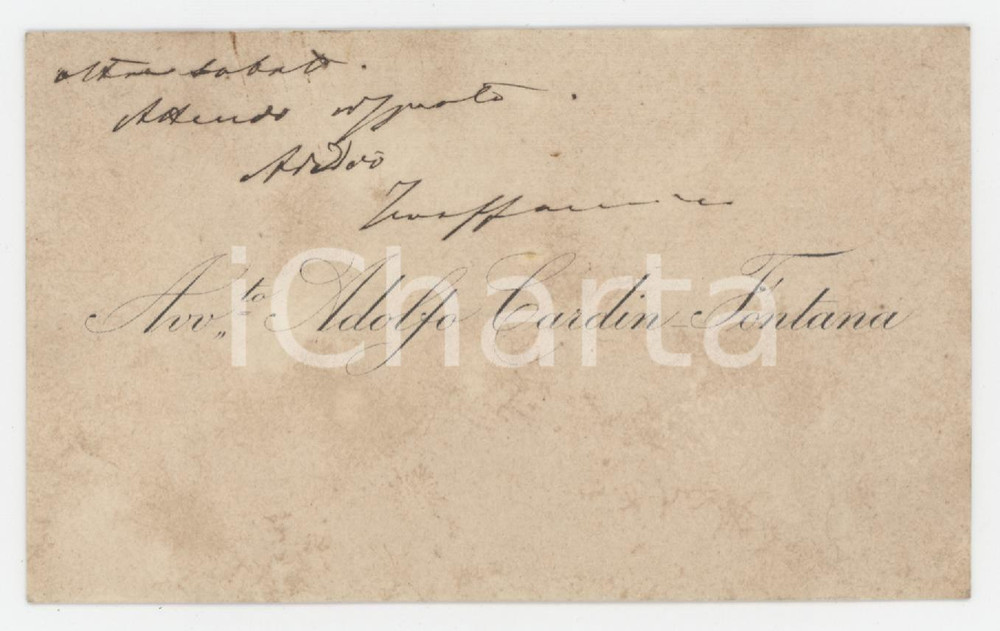 oltre sabato.
Attendo risposta.
Addio
Avv.to Adolfo Cardin-Fontana
iCharta